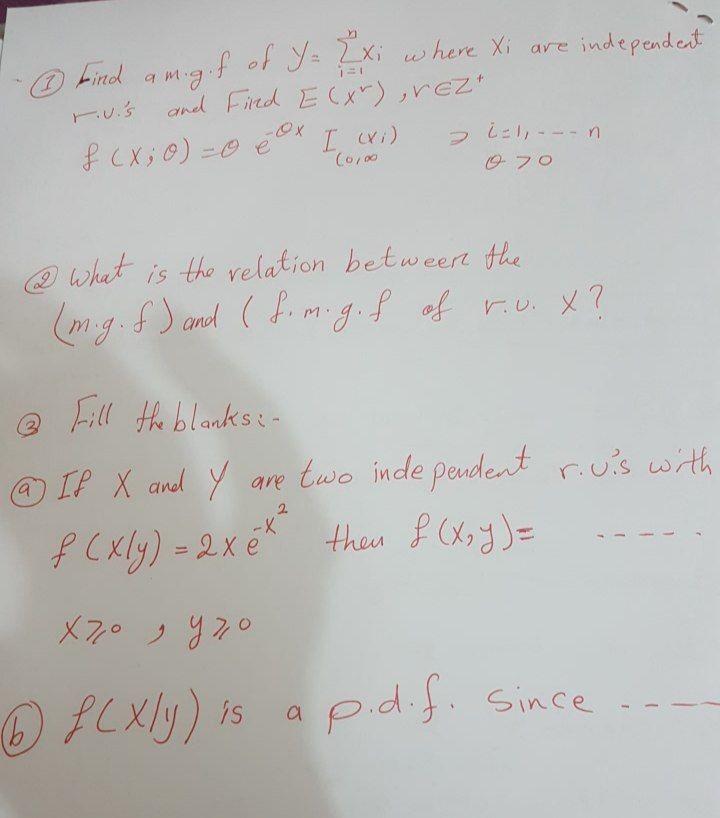 ① Find a m.g.f of Y = ∑_{i=1}^{n} Xi where Xi are independent
r.v.'s and Find E(X^r), r∈Z⁺
f(X;θ) = θ e^{-θx} I_{(0,∞} (Xi) , i=1, --- n
θ > 0
② What is the relation between the
(m.g.f) and (f.m.g.f of r.v. X?
③ Fill the blanks:-
ⓐ If X and Y are two independent r.v.'s with
f(x/y) = 2x e^{-x²} then f(x,y) = -----
x ≥ 0 , y ≥ 0
ⓑ f(x/y) is a p.d.f. Since ----